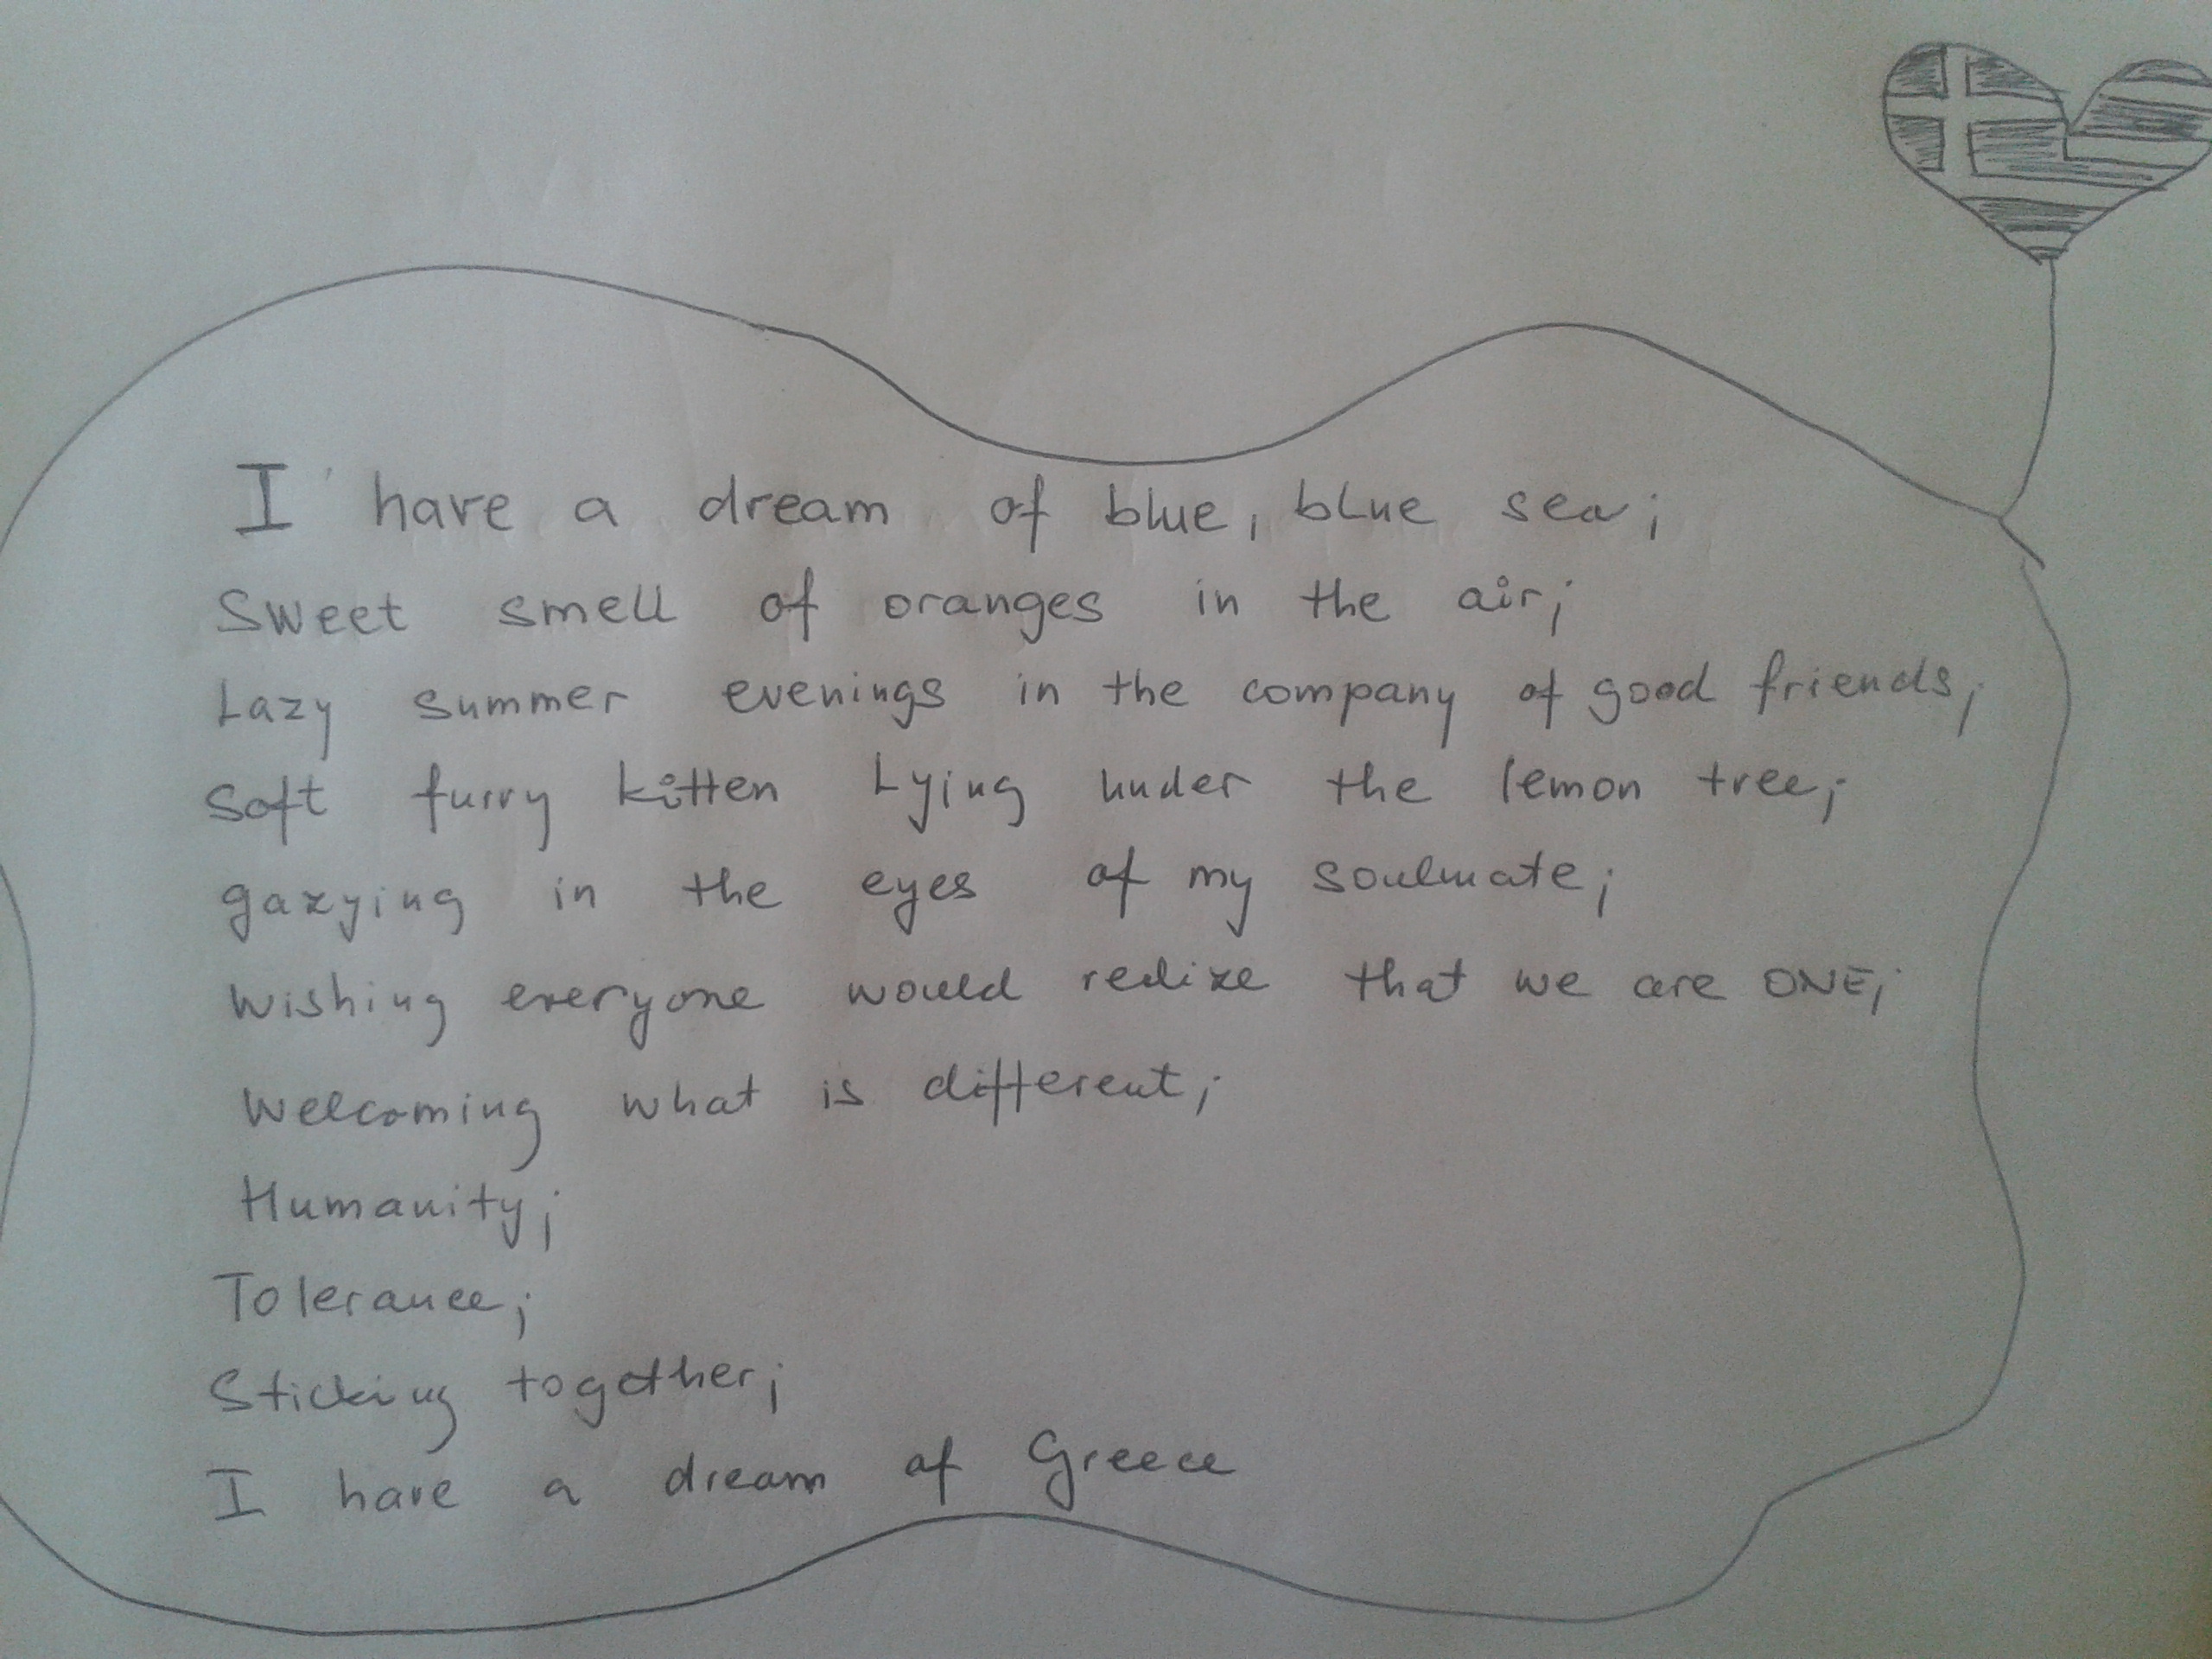 I have a dream of blue, blue sea;
Sweet smell of oranges in the air;
Lazy summer evenings in the company of good friends;
Soft furry kitten Lying under the lemon tree;
gazying in the eyes of my soulmate;
Wishing everyone would realize that we are ONE;
Welcoming what is different;
Humanity;
Tolerance;
Sticking together;
I have a dream of Greece